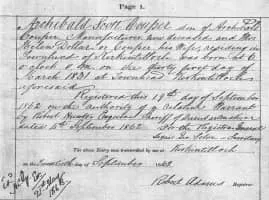 Page 1.
Archibald Scott Couper son of Archibald
Couper Manufacturer now deceased and Mrs
Helen Dollar or Couper his Wife, residing in
Townhead of Kirkintilloch was born at
o'clock on the thirty first day of
March 1831 at Townhead Kirkintilloch
aforesaid
Registered this 19th day of September
1862 on the authority of a Warrant
by Robert Hunter Sheriff of Dunbartonshire
dated 15th September 1862. For the Registrar General
The above Entry was transmitted by me at Kirkintilloch
on the day of September 1862.
Robert Registrar